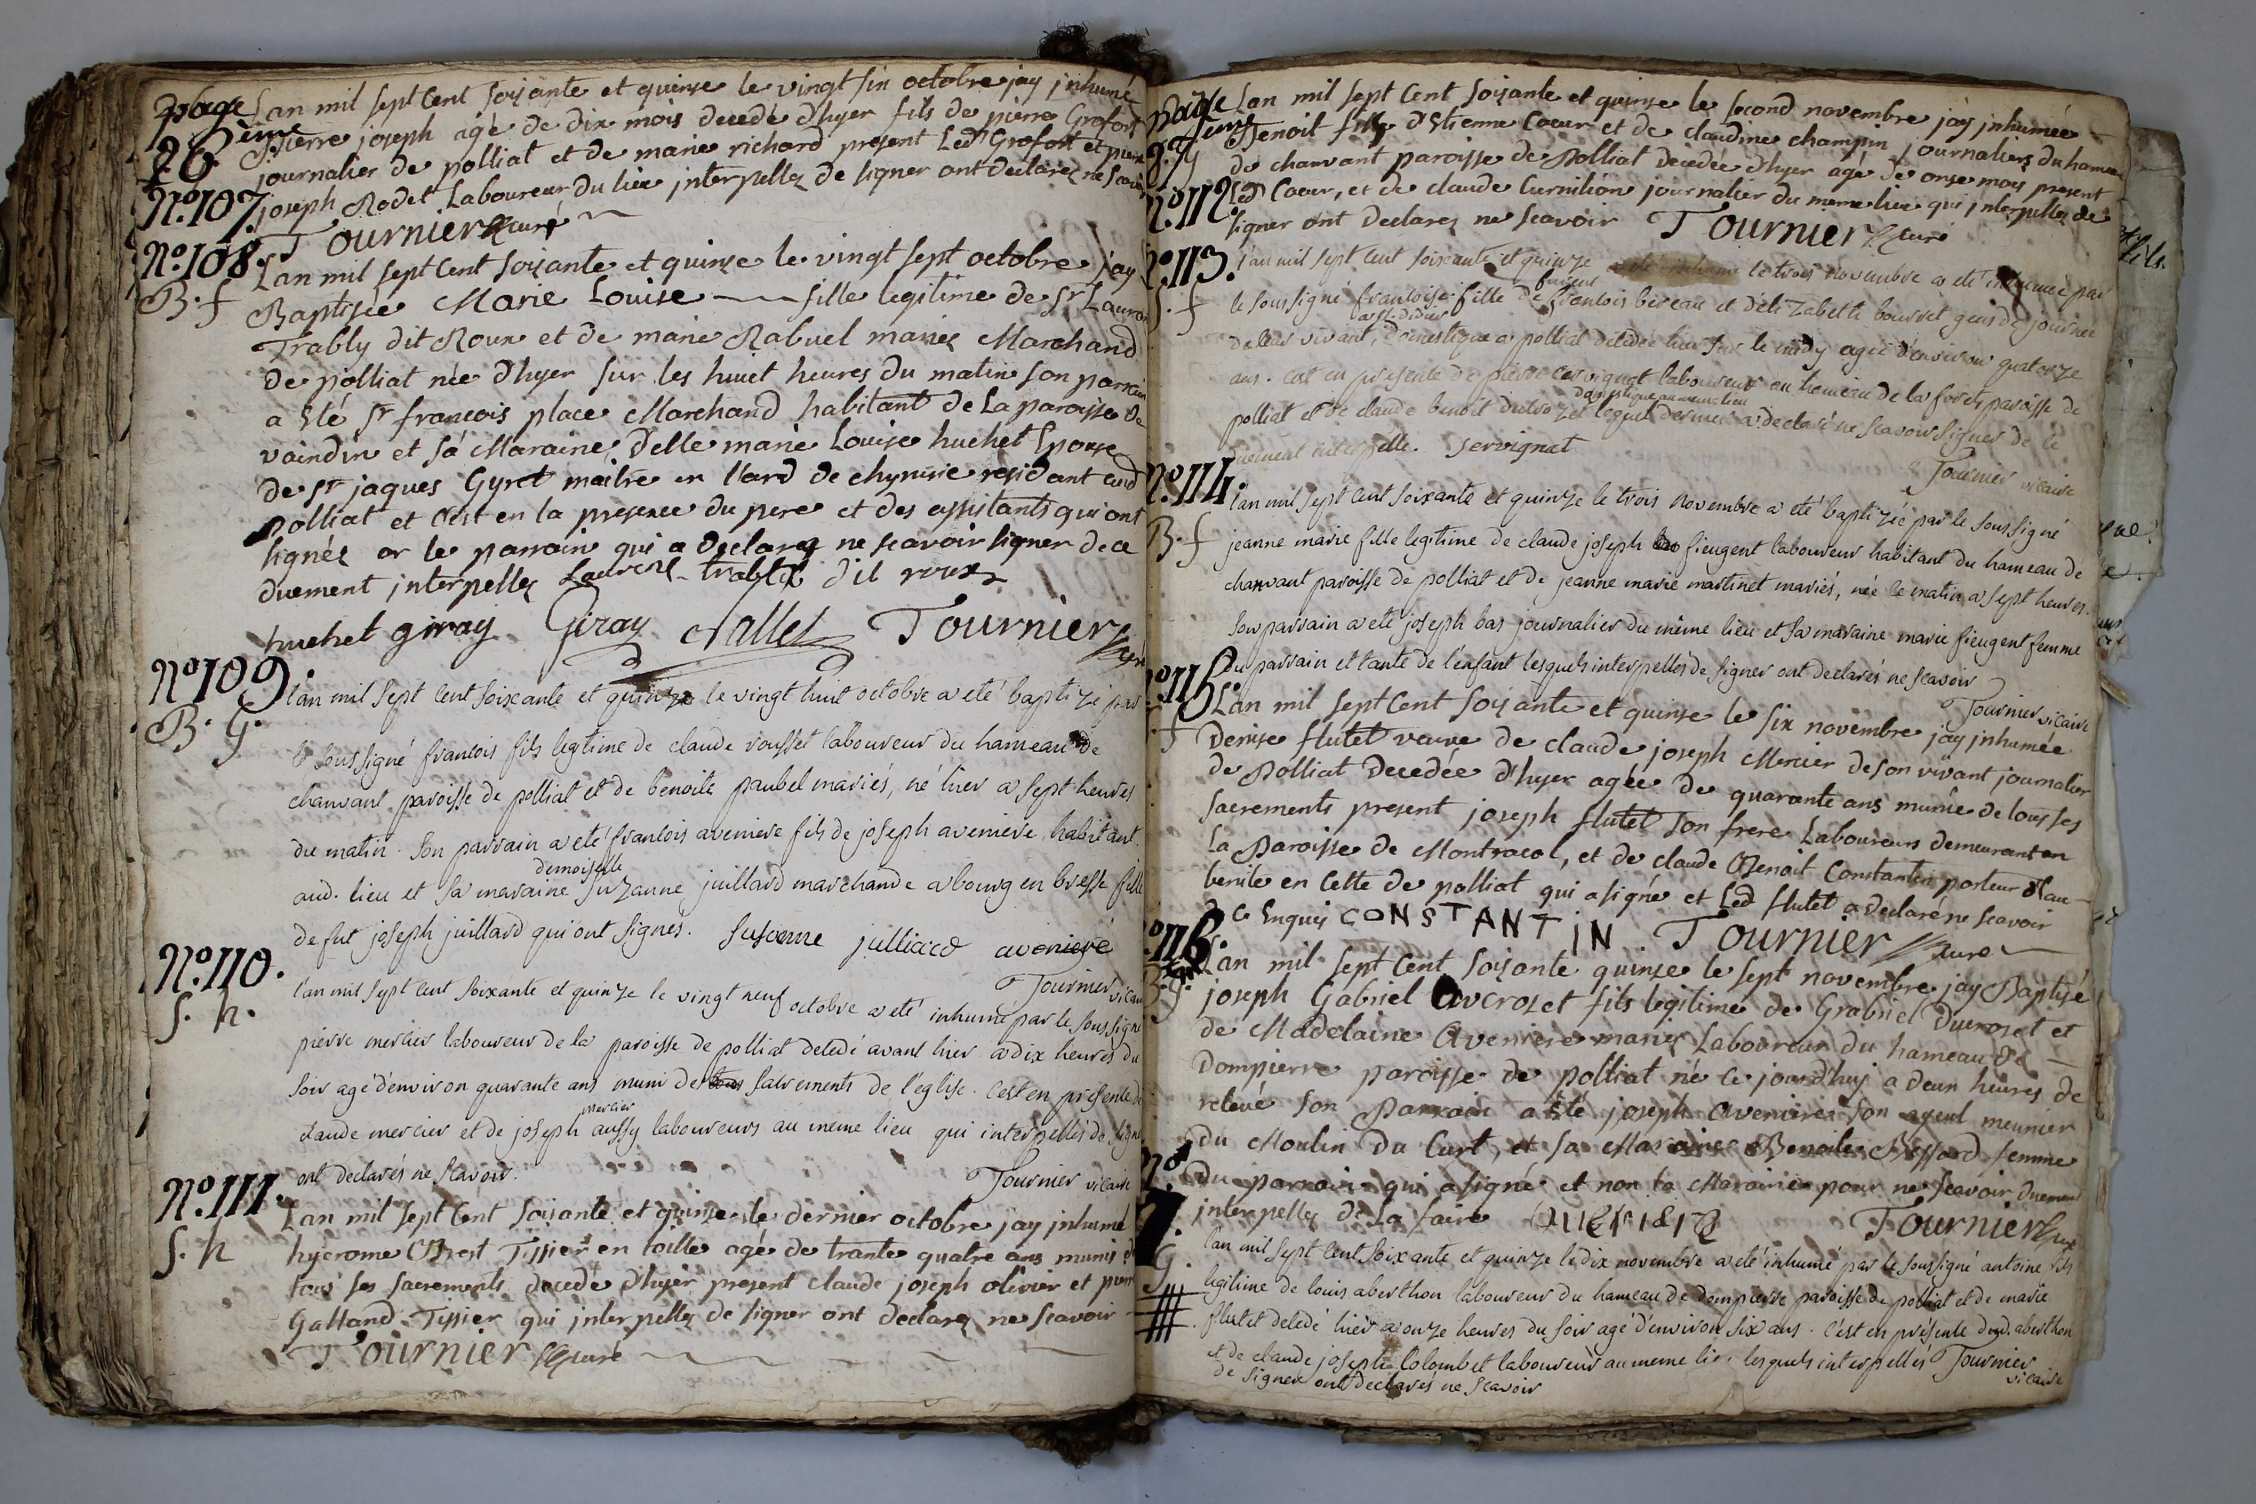 page
26ème
Lan mil sept Cent Soixante et quinze le vingt six octobre jay jnhumé
Pierre joseph agé de dix mois decedé d'hyer fils de pierre Grofort
journalier de polliat et de marie richard present Led Grofort et pierre
N.o 107. joseph Rodet Laboureur du lieu jnterpellez de signer ont declarez ne scavoir
Tournier curé
N.o 108.
B. f
Lan mil sept Cent Soixante et quinze le vingt sept octobre jay
Baptisée Marie Louise fille legitime de Sr Lauren
Trably dit Roux et de marie Rabuel mariez Marchand
de polliat née d'hyer sur les huiet heures du matin son parrain
a Eté Sr francois place Marchand habitant de La paroisse de
vaindin et sa Maraine Delle marie Louise huchet Epouse
de Sr jaques Gyret maitre en l'ard de chymie residant aud
Polliat et C'est en la presence du pere et des assistants qui ont
signéz or le parrain qui a declaré ne scavoir signer de ce
duement jnterpellez Laurent trably dit roux
huchet giray Giray Nallet Tournier curé
N.o 109.
B. G.
l'an mil sept cent soixante et quinze le vingt huit octobre a eté baptizé par
le soussigné francois fils legitime de claude rousset laboureur du hameau de
chanvant paroisse de polliat et de benoite paubel mariés, né hier a sept heures
du matin. Son parrain a eté francois aveniere fils de joseph aveniere habitant
demoiselle
aud. lieu et sa maraine suzanne juillard marchande a bourg en bresse fille
de fut joseph juillard qui ont signés. Susanne julliard aveniere
Tournier vicaire
N.o 110.
S. h.
l'an mil sept cent soixante et quinze le vingt neuf octobre a eté inhumé par le soussigné
pierre mercier laboureur de la paroisse de polliat decedé avant hier a dix heures du
soir agé d'environ quarante ans muni des sacrements de l'eglise. C'est en présence de
mercier
claude mercier et de joseph aussy laboureurs au meme lieu qui interpellés de signer
ont declarés ne scavoir. Tournier vicaire
N.o 111.
S. h
Lan mil sept Cent Soixante et quinze le dernier octobre jay jnhumé
hyerome Brest Tissier en toille agé de trante quatre ans munis de
tous ses sacrements decedé d'hyer present claude joseph olivier et
Galland Tissier qui jnterpellez de signer ont declarez ne scavoir
Tournier curé
page
Lan mil sept Cent Soixante et quinze le second novembre jay jnhumée
Benoit fille d'Etienne Coeur et de claudine champin journaliers du hameau
de chanvant paroisse de Polliat Decedée d'hyer agé de onze mois present
N.o 112. Led Coeur, et de claude Curnilion journalier du meme lieu qui jnterpellez de
signer ont declarez ne scavoir Tournier curé
N.o 113.
S. f
l'an mil sept cent soixante et quinze le trois novembre a eté inhumée par
le soussigné francoise fille de francois bereau et d'elizabeth bousset gens de journée
de leur vivant, domestique a polliat decedée hier sur le midy agée d'environ quatorze
ans. C'est en présence de pierre cervignat laboureur au hameau de la foret paroisse de
domestique au meme lieu
polliat et de claude benoit ducrozet lequel dernier a declaré ne scavoir signer de ce
duement interpellé. Servignat
Tournier vicaire
N.o 114.
B. f
l'an mil sept cent soixante et quinze le trois Novembre a eté baptizée par le soussigné
jeanne marie fille legitime de claude joseph fieugent laboureur habitant du hameau de
chanvant paroisse de polliat et de jeanne marie martinet mariés, née le matin a sept heures.
Son parrain a eté joseph bas journalier du même lieu et sa maraine marie fieugent femme
du parrain et tante de l'enfant lesquels interpellés de signer ont declarés ne scavoir
Tournier vicaire
N.o 115.
f
L'an mil sept Cent Soixante et quinze le six novembre jay jnhumée
Denise flutet veuve de claude joseph Mercier de son vivant journalier
de Polliat Decedée d'hyer agée de quarante ans munie de tous ses
sacrements present joseph flutet son frere Laboureurs demeurant en
La Paroisse de Montracol, et de claude Benoit Constantin porteur d'eau
benite en Cette de polliat qui a signé et Led flutet a declaré ne scavoir
de ce Enquis CONSTANTIN Tournier curé
N.o 116.
L'an mil sept Cent Soixante quinze le sept novembre jay Baptisé
joseph Gabriel Ducroset fils legitime de Grabriel Ducroset et
de Madelaine Aveniere mariez Laboureur du hameau de
Dompierre paroisse de polliat né ce jourd'huy a deux heures de
relevé son Parrain a Eté joseph Aveniere son ayeul meunier
du Moulin du Curt, et sa Maraine Benoite Biffard femme
du parrain qui a signé et non la Maraine pour ne scavoir duement
jnterpellez de La faire Tournier curé
G.
l'an mil sept cent soixante et quinze le dix novembre a eté inhumé par le soussigné antoine fils
legitime de louis aberthon laboureur du hameau de dompierre paroisse de polliat et de marie
flutet decedé hier a onze heures du soir agé d'environ six ans. C'est en présence dud. aberthon
et de claude joseph Colombet laboureur au meme lieu lesquels interpellés
de signer ont declarés ne scavoir
Tournier
vicaire